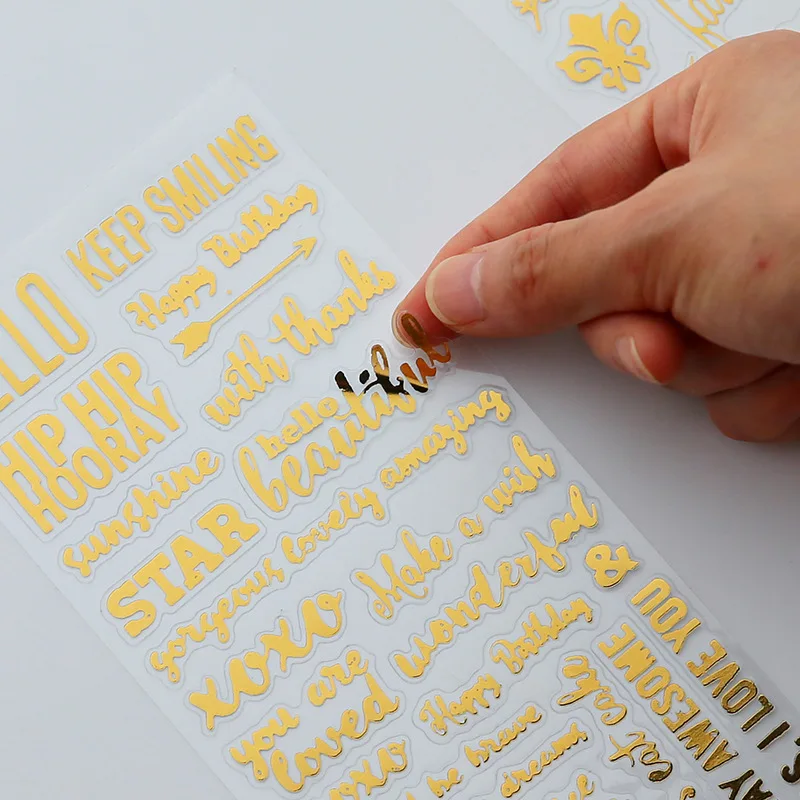 KEEP SMILING
Happy Birthday
HIP HIP
HOORAY
with thanks
hello
beautiful
sunshine
STAR
gorgeous lovely amazing
Make a wish
xoxo
wonderful
&
you are
loved
Happy Birthday
I LOVE YOU
AWESOME
eat cake
xoxo
be brave
dreams